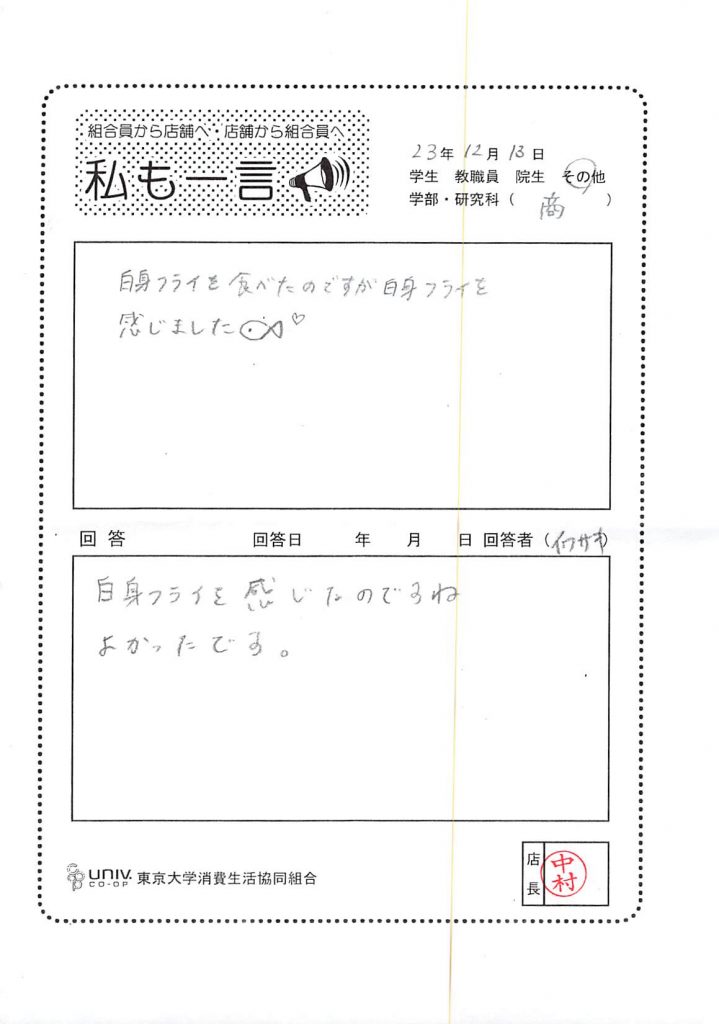 組合員から店舗へ・店舗から組合員へ
私も一言
23年 12月 13日
学生 教職員 院生 その他
学部・研究科(商)
自身フライを食べたのですが自身フライを
感じました
回答 回答日 年 月 日 回答者(イワサキ)
自身フライを感じたのですね
よかったです。
UNIV. CO-OP 東京大学消費生活協同組合
店長 中村